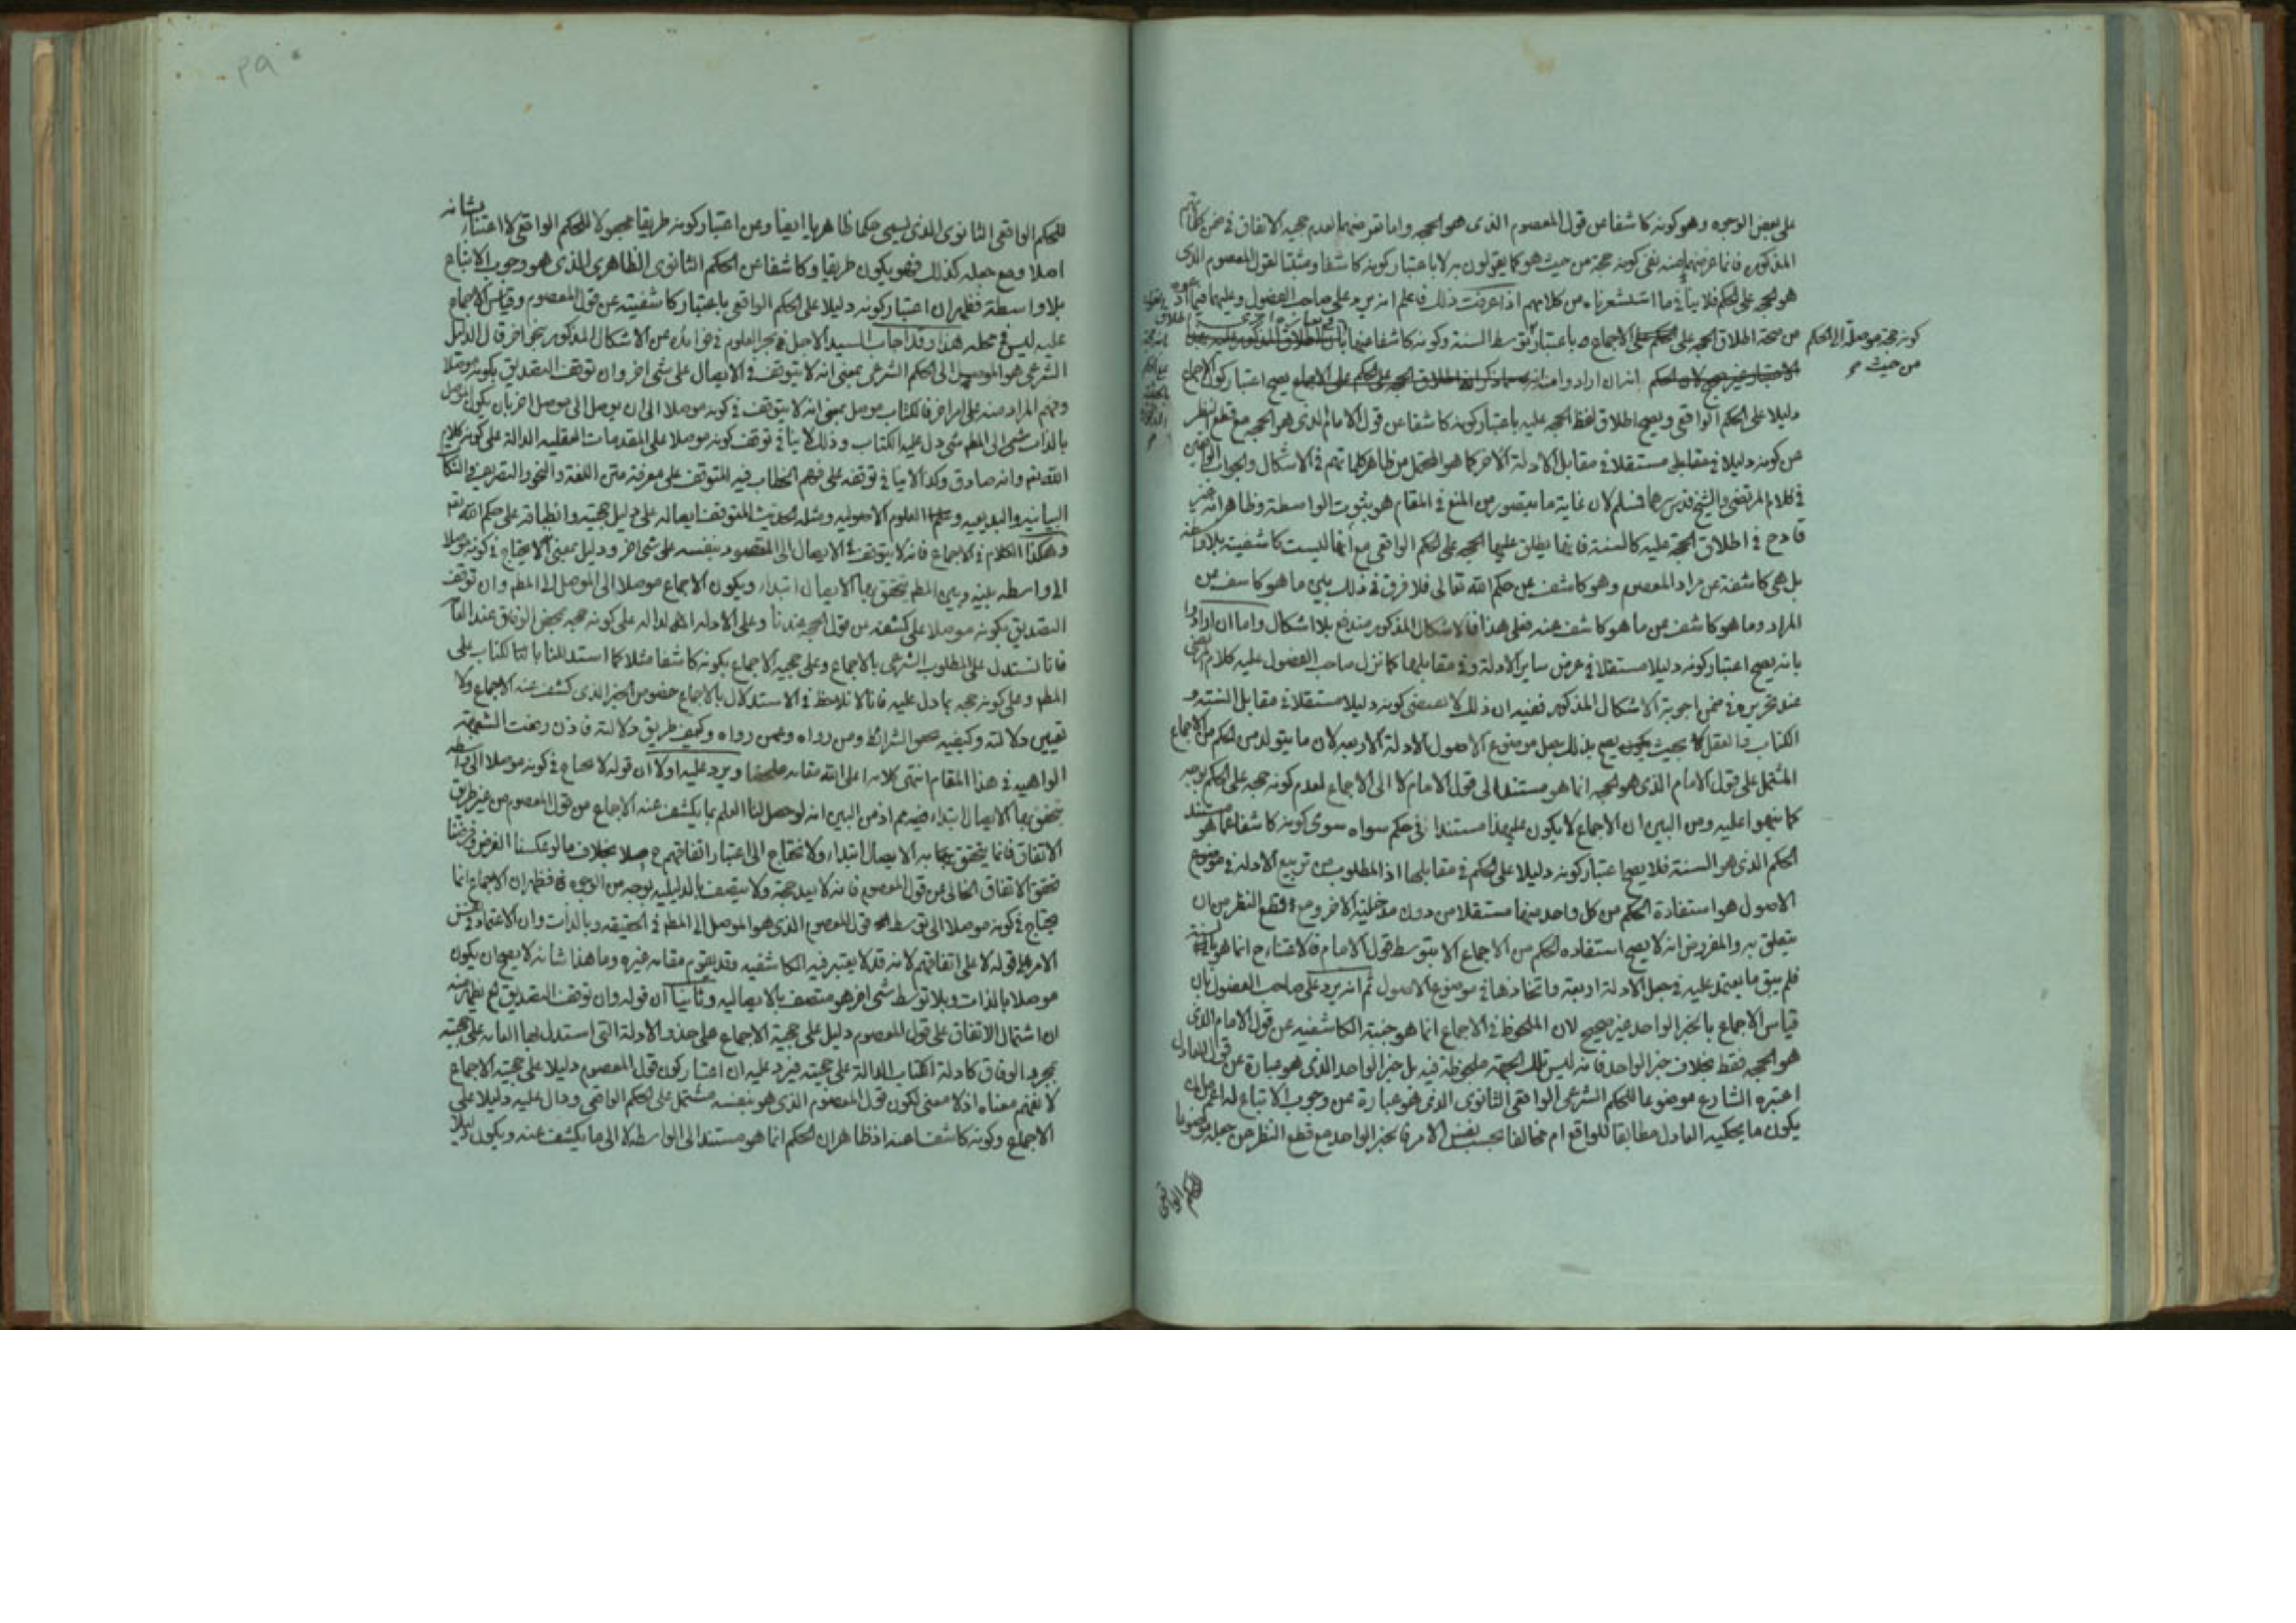 على بعض الوجوه وهو كونه كاشفا عن قول المعصوم الذى هو الحجه واما تعرضهما لعدم حجيه الاتفاق فى ضمن كلماتهم
المذكوره فانما غرضهما منه نفى كونه حجه من حيث هو كما يقولون به لا باعتبار كونه كاشفا ومثبتا لقول المعصوم الذى
هو الحجه على الحكم فلا ينافى ما استشعرناه من كلامهم اذا عرفت ذلك فاعلم انه يرد على صاحب الفصول وعليهما فيما
من صحة اطلاق الحجه على الاجماع باعتبار توسط السنة وكونه كاشفا عنها
كونه حجة موصلة الى الحكم
من حيث
انه ان اراد وا على الاجماع يصح اعتبار كون الاجماع
دليلا على الحكم الواقعى ويصح اطلاق لفظ الحجه عليه باعتبار كونه كاشفا عن قول الامام الذى هو الحجه مع قطع النظر
عن كونه دليلا فى مقابل مستقلا فى مقابل الادلة الاخر كما هو المحتمل من ظاهر كلماتهم فى الاشكال والجواب
فى كلام المرتضى والشيخ قدس سرهما فمسلم لان غاية ما يتصور من المنع فى المقام هو ثبوت الواسطة وظاهر انه غير
قادح فى اطلاق الحجة عليه كالسنة فانها يطلق عليها الحجه على الحكم الواقعى مع انها ليست كاشفية بلا واسطه
بل هى كاشفة عن مراد المعصوم وهو كاشف عن حكم الله تعالى فلا فرق فى ذلك بين ما هو كاشف عن
المراد وما هو كاشف عن ما هو كاشف عنه فعلى هذا فالاشكال المذكور مندفع بلا اشكال واما ان ارادوا
بانه يصح اعتبار كونه دليلا مستقلا فى عرض ساير الادلة وفى مقابلها كما نزل صاحب الفصول عليه كلام
عند تحريره فى ضمن اجوبة الاشكال المذكور ففيه ان ذلك لا يقتضى كونه دليلا مستقلا فى مقابل السنة و
الكتاب والعقل بحيث يصح بذلك جعل موضوع الاصول الادلة الاربعه لان ما يتولد من الحكم من الاجماع
المشتمل على قول الامام الذى هو الحجه انما هو مستند الى قول الامام لا الى الاجماع لعدم كونه حجه على الحكم بوجه
كما نبهوا عليه ومن البين ان الاجماع لا يكون على هذا مستندا فى حكم سواه سوى كونه كاشفا عما هو مستند
الحكم الذى هو السنة فلا يصح اعتبار كونه دليلا على الحكم فى مقابلها اذ المطلوب من تربيع الادلة فى موضوع
الاصول هو استفادة الحكم من كل واحد منها مستقلا من دون مدخلية الاخر ومع قطع النظر من ان
يتعلق به والمفروض انه لا يصح استفاده الحكم من الاجماع الا بتوسط قول الامام فالاقتناء ح انما هو بالسنة
فلم يبق ما يعتمد عليه فى جعل الادلة اربعة واتخاذها فى موضوع الاصول ثم انه يرد على صاحب الفصول بان
قياس الاجماع بالخبر الواحد غير صحيح لان الملحوظ فى الاجماع انما هو جنبة الكاشفيه عن قول الامام الذى
هو الحجه فقط بخلاف خبر الواحد فانه ليس تلك الجهة ملحوظة فيه بل خبر الواحد الذى هو عبارة عن قول العادل
اعتبره الشارع موضوعا للحكم الشرعى الواقعى الثانوى الذى هو عبارة عن وجوب الاتباع له اعم من ان
يكون ما يحكيه العادل مطابقا للواقع ام مخالفا بحسب نفس الامر فالخبر الواحد مع قطع النظر عن جعله موضوعا
للحكم الواقعى
للحكم الواقعى الثانوى الذى يسمى حكما ظاهريا ايضا وعن اعتبار كونه طريقا مجعولا للحكم الواقعى لا اعتبار بشانه
اصلا ومع جعله كذلك فهو يكون طريقا وكاشفا عن الحكم الثانوى الظاهرى الذى هو وجوب الاتباع
بلا واسطة فظهر ان اعتبار كونه دليلا على الحكم الواقعى باعتبار كاشفيته عن قول المعصوم وقياس الاجماع
عليه ليس فى محله هذا وقد اجاب السيد الاجل بحر العلوم فى فوائده عن الاشكال المذكور بنحو اخر قال الدليل
الشرعى هو الموصل الى الحكم الشرعى بمعنى انه لا يتوقف فى الايصال على شئ اخر وان توقف التصديق بكونه موصلا
وفهم المراد منه على امر اخر فالكتاب موصل بمعنى انه لا يتوقف فى كونه موصلا الى ان يوصل الى موصل اخر بان يكون الموصل
بالذات شئ الى المطم شئ دل عليه الكتاب وذلك لا ينافى توقف كونه موصلا على المقدمات العقليه الدالة على كونه كلام
الله تعم وانه صادق وكذا لا ينافى توقفه على فهم الخطاب فيه المتوقف على معرفة متن اللغة والنحو والتصريف والنكا
البيانيه والبديعيه وعلم العلوم الاصوليه ومثله الحديث المتوقف ايصاله على دليل حجيته وانطباقه على حكم الله تعم
وهكذا الكلام فى الاجماع فانه لا يتوقف فى الايصال الى المقصود بنفسه على شئ اخر ودليل بمعنى لا يحتاج فى كونه موصلا
الى واسطه بينه وبين المطم يتحقق بها الايصال ابتداء ويكون الاجماع موصلا الى الموصل الى المطم وان توقف
التصديق بكونه موصلا على كشفه عن قول الحجه عندنا وعلى الادله الداله على كونه حجه بمحض الوفاق عند العامه
فانا نستدل على المطلوب الشرعى بالاجماع وعلى حجيه الاجماع بكونه كاشفا مثلا كما استدللنا بالكتاب على
المطم وعلى كونه حجه بما دل عليه فانا لا نلاحظ فى الاستدلال بالاجماع خصوص الخبر الذى كشف عنه الاجماع ولا
تعيين دلالته وكيفيه الشرائط ومن رواه وعمن رواه وكيف طريق دلالته فاذن رفعت الشبهة
الواهيه فى هذا المقام انتهى كلامه اعلى الله مقامه ملخصا ويرد عليه اولا ان قوله لا يحتاج فى كونه موصلا الى واسطه
يتحقق بها الايصال ابتداء فيه مم اذ من البين انه لو حصل لنا العلم بما يكشف عنه الاجماع من قول المعصوم من غير طريق
الاتفاق فانما يتحقق به الايصال ابتداء ولا نحتاج الى اعتبار اتفاقهم ح اصلا بخلاف ما لو عكسنا الفرض وفرضنا
تحقق الاتفاق الخالى عن قول المعصوم فانه لا يعد حجة ولا يتصف بالدليليه بوجه من الوجوه فظهر ان الاجماع انما
يحتاج فى كونه موصلا الى توسط قول المعصوم الذى هو الموصل الى المطم فى الحقيقه وبالذات وان الاعتماد فى نفس
الامر على قوله لا على اتفاقهم لانه قد لا يعتبر فيه الكاشفيه وقد يقوم مقامه غيره وما هذا شانه لا يصح ان يكون
موصلا بالذات وبلا توسط شئ اخر هو متصف بالايصاليه وثانيا ان قوله وان توقف التصديق يظهر منه
ان اشتمال الاتفاق على قول المعصوم دليل على حجية الاجماع على حذو الادلة التى استدل بها العامه على حجيته
بمجرد الوفاق كادلة الكتاب الدالة على حجيته فيرد عليه ان اعتبار كون قول المعصوم دليلا على حجية الاجماع
لا نفهم معناه اذ لا معنى لكون قول المعصوم الذى هو بنفسه مشتمل على الحكم الواقعى ودال عليه دليلا على
الاجماع وكونه كاشفا عنه اذ ظاهر ان الحكم انما هو مستند الى الواسطة لا الى ما يكشف عنه ويكون دليلا